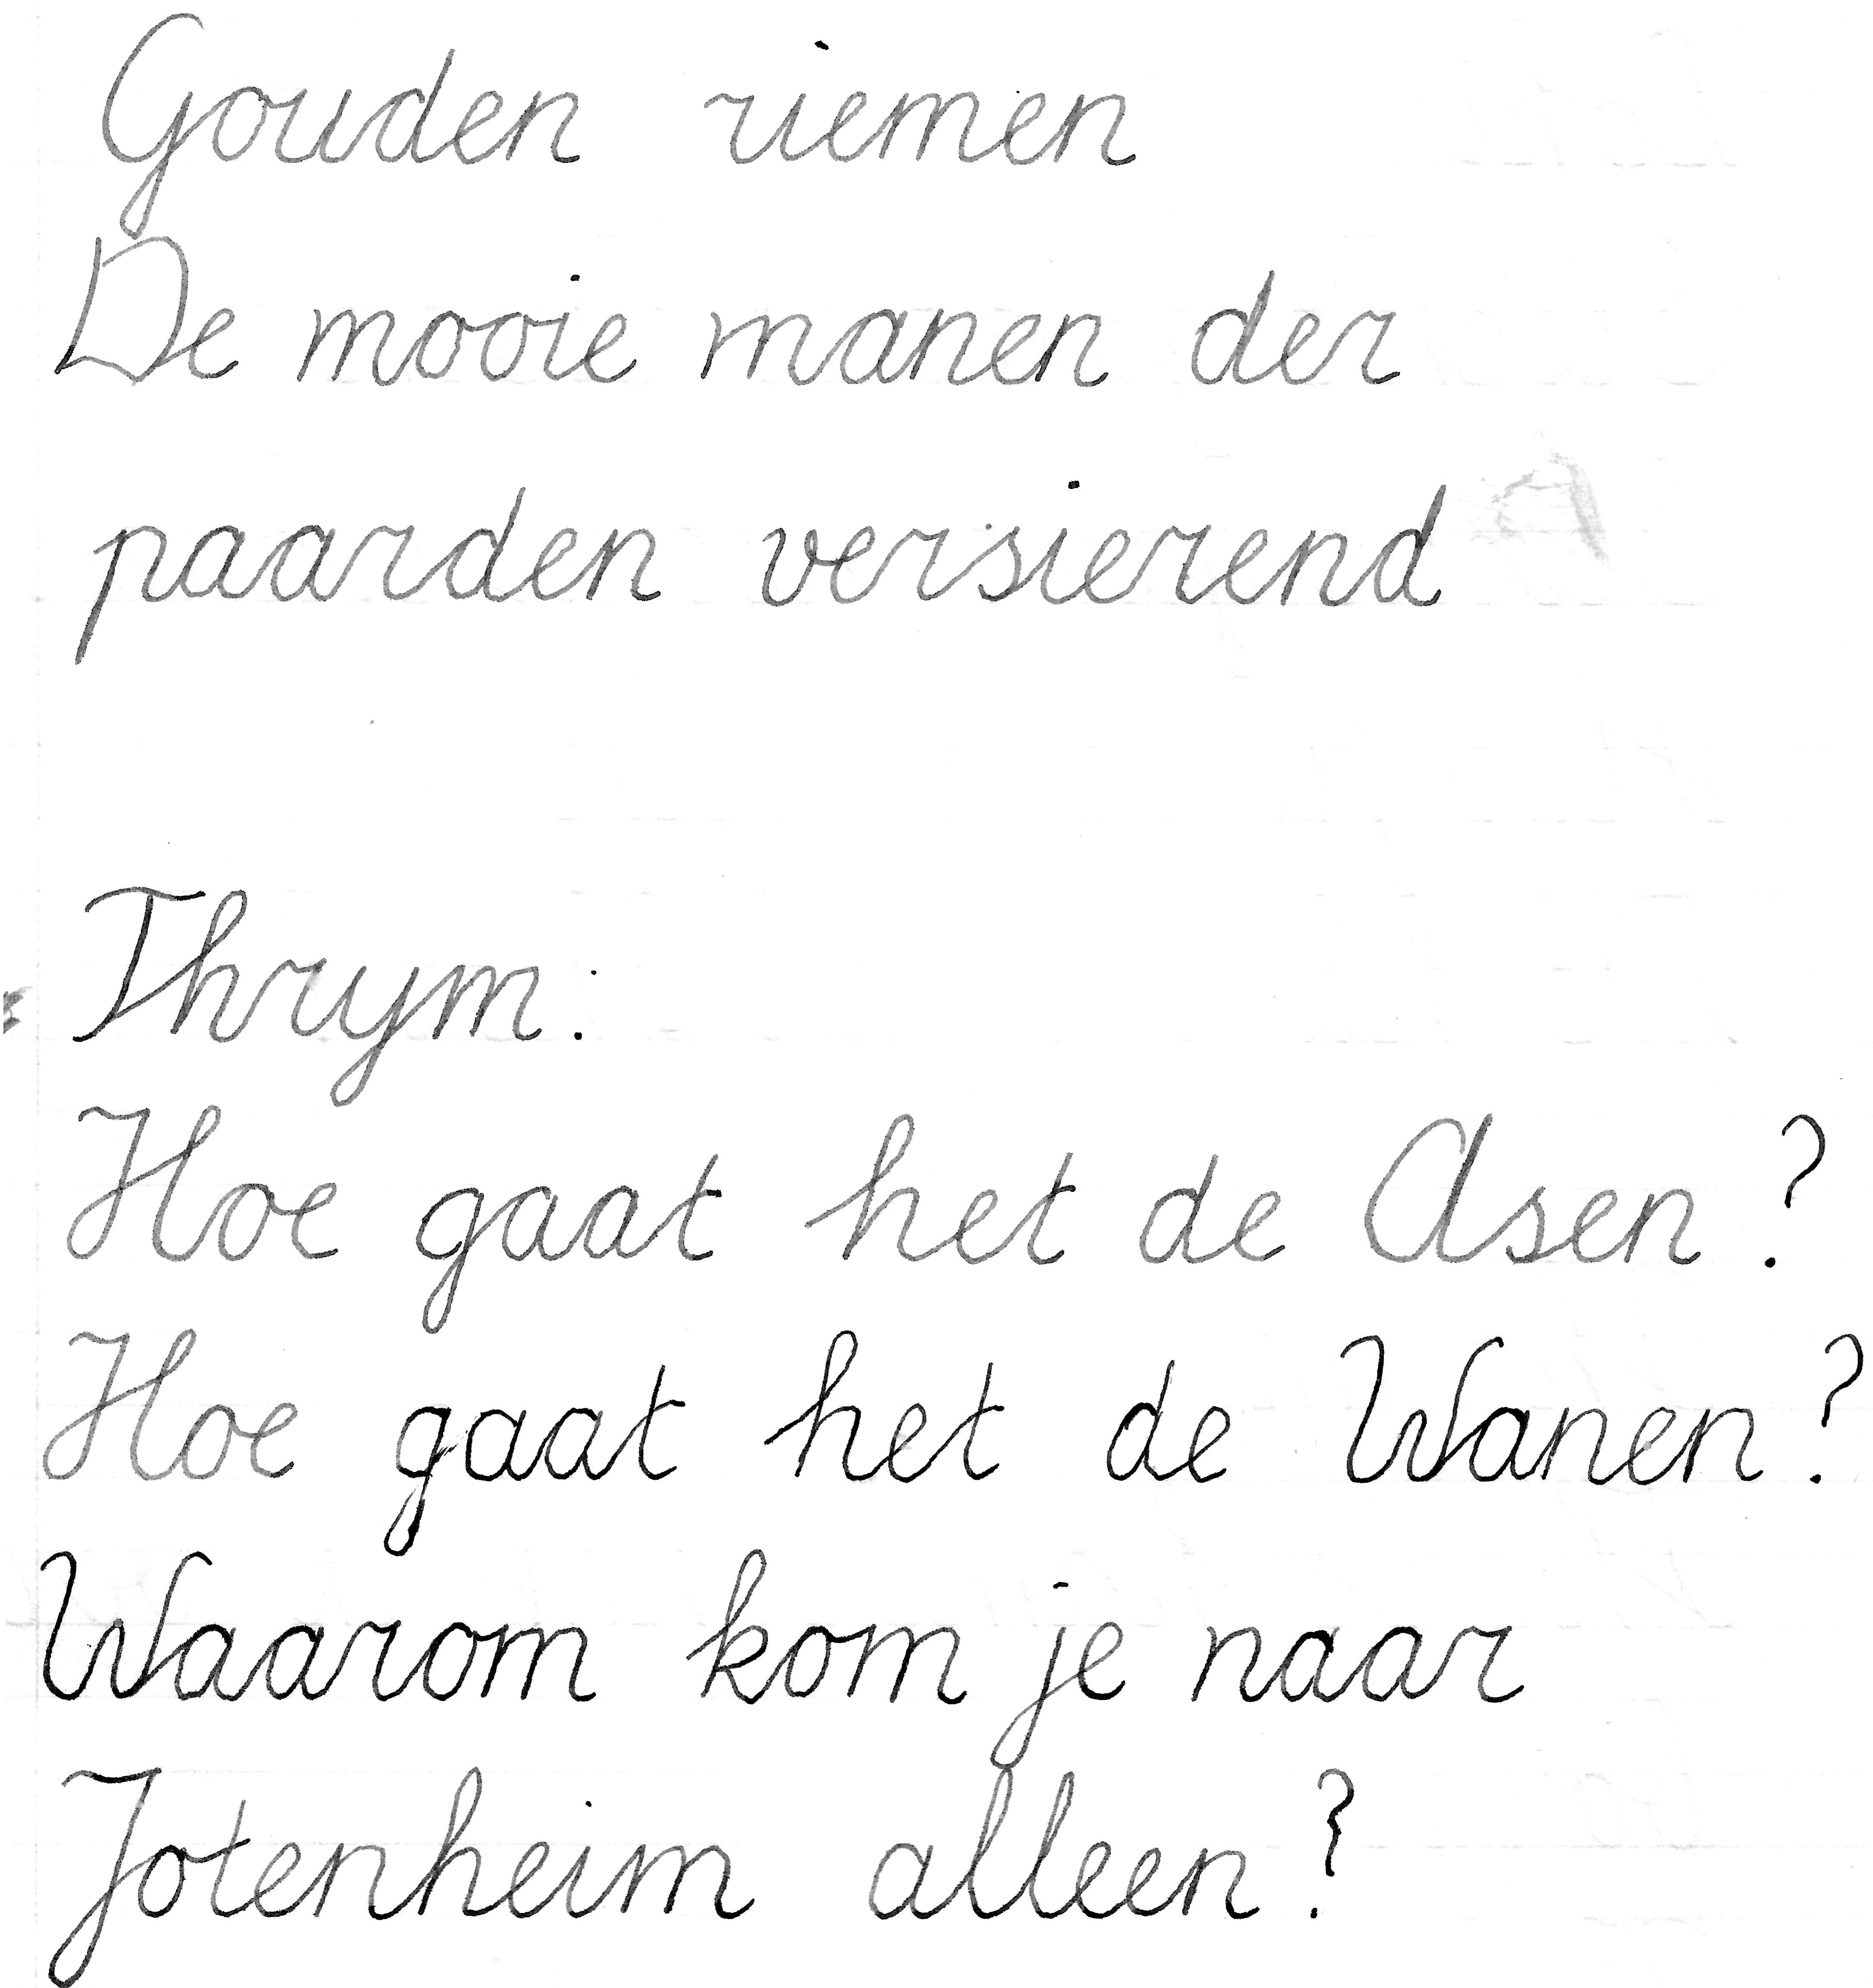 Gouden riemen
De mooie manen der
paarden versierend
Thrym:
Hoe gaat het de Asen?
Hoe gaat het de Wanen?
Waarom kom je naar
Jotenheim alleen?